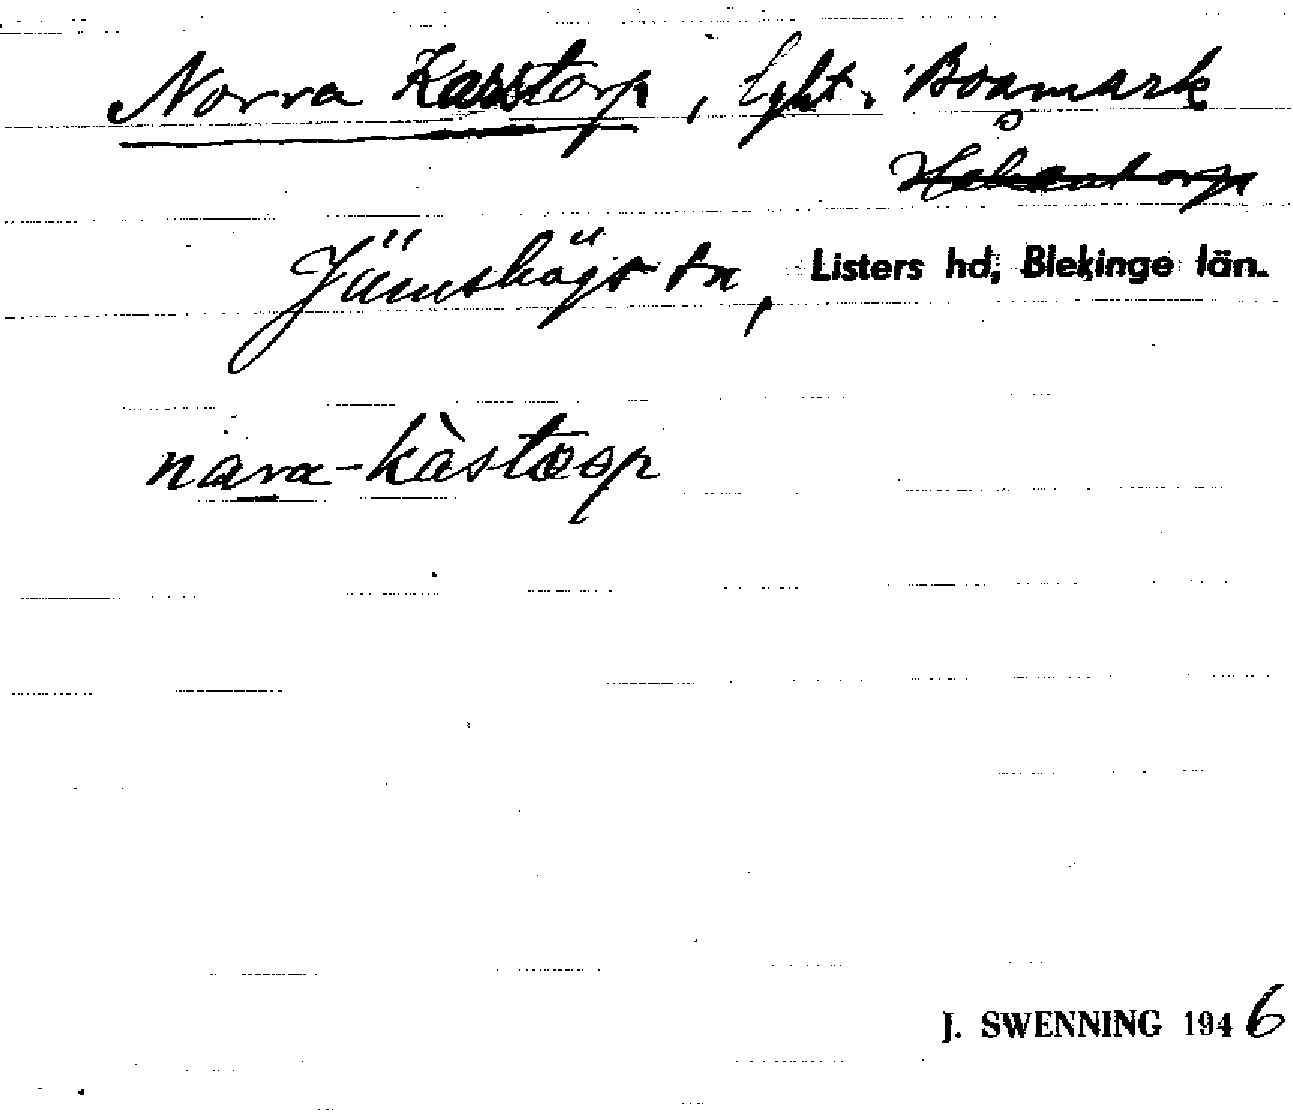 Norra Kasstorp, lght. Boamark
Håkantorp
Jämshögs sn, Listers hd, Blekinge län.
nara-kàstɷrp
J. SWENNING 1946